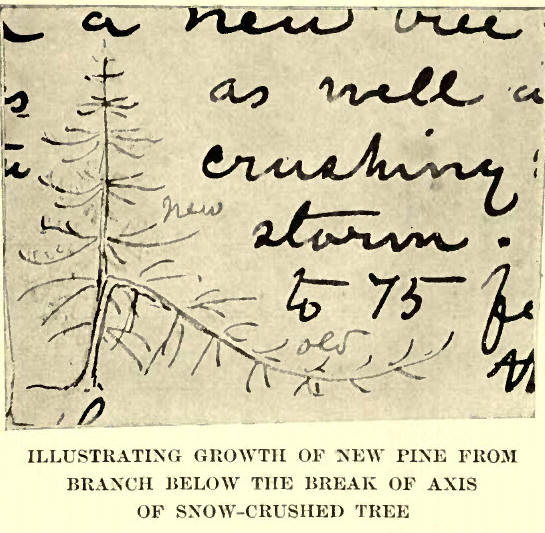 a new tree
as well a
crushing
new
storm.
to 75 fe
old
ILLUSTRATING GROWTH OF NEW PINE FROM
BRANCH BELOW THE BREAK OF AXIS
OF SNOW-CRUSHED TREE